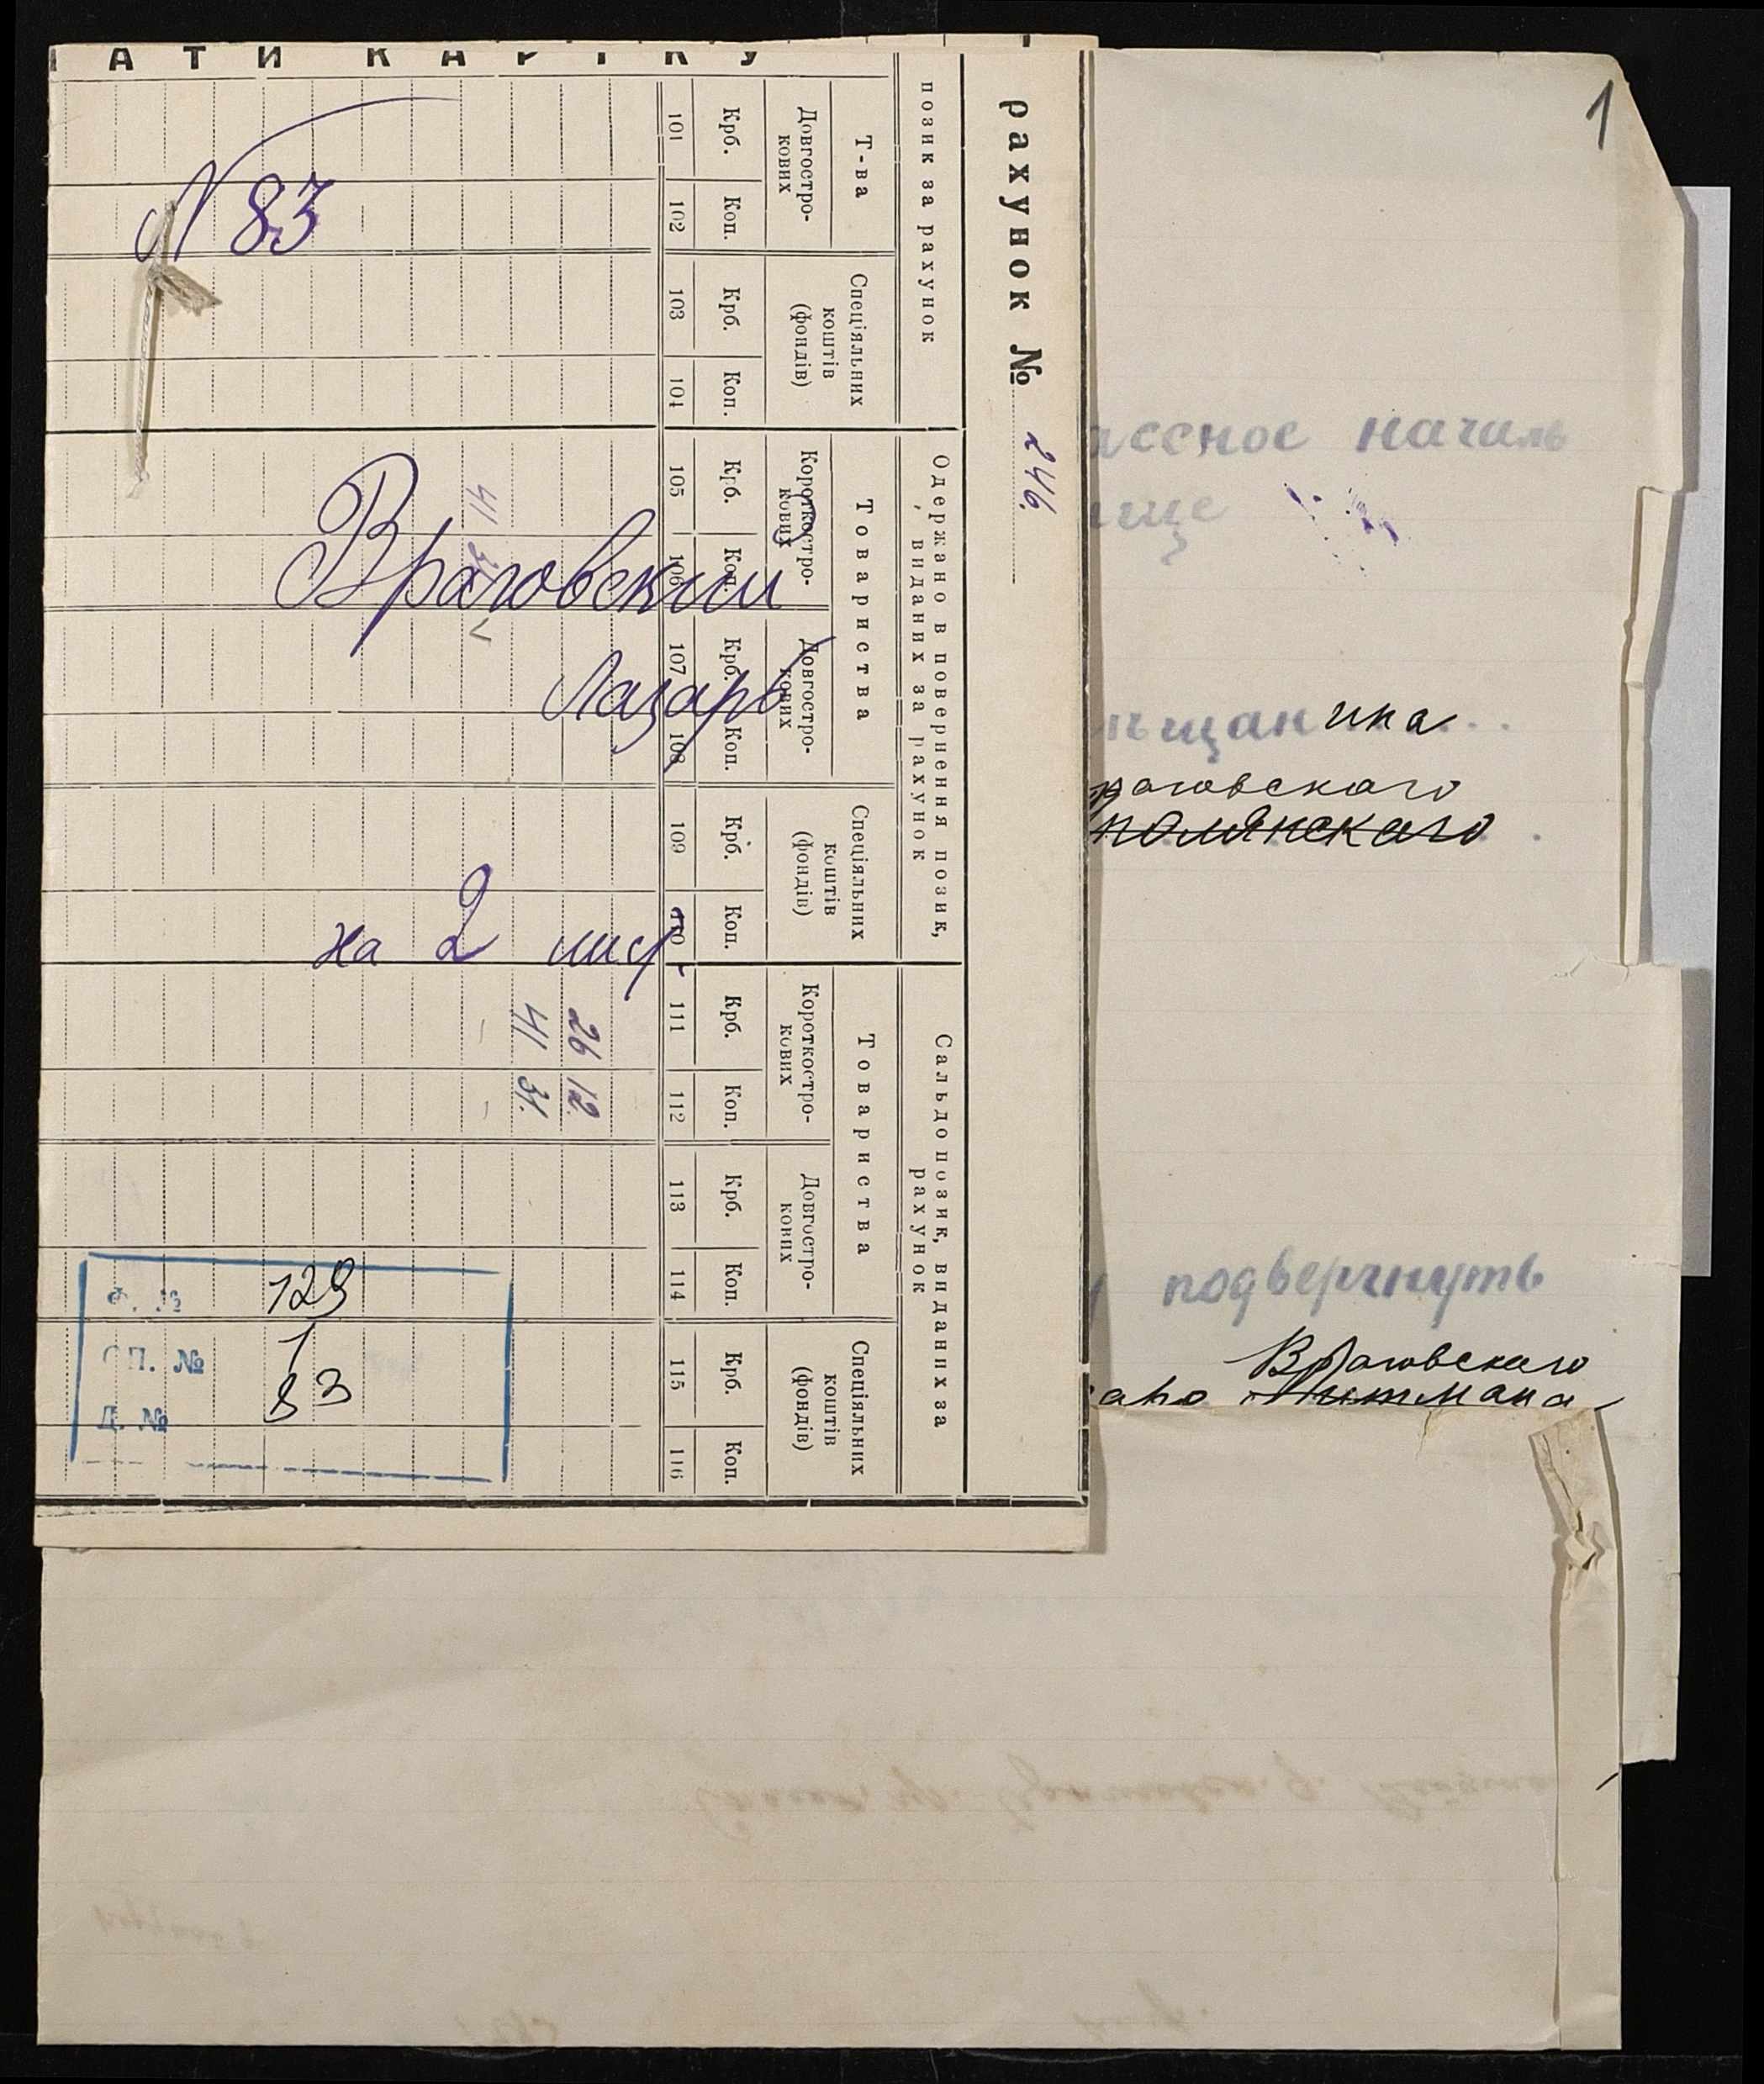 АТИ КАРТКУ
рахунок № 246.
позик за рахунок
Одержано в повернення позик,
виданих за рахунок
Сальдо позик, виданих за
рахунок
Т-ва
Спеціяльних
коштів
(фондів)
Товариства
Спеціяльних
коштів
(фондів)
Товариства
Спеціяльних
коштів
(фондів)
Довгостро-
кових
Короткостро-
кових
Довгостро-
кових
Короткостро-
кових
Довгостро-
кових
Крб. Коп. Крб. Коп. Крб. Коп. Крб. Коп. Крб. Коп. Крб. Коп. Крб. Коп. Крб. Коп.
101 102 103 104 105 106 107 108 109 110 111 112 113 114 115 116
26 12.
41 31.
N 83
Враговский
Лазарь
на 2 лис
Ф. № 129
ОП. № 1
Д. № 83
1
ассное началь
ище
щанина
раговскаго
полянскаго
подвергнуть
Враговскаго
Литмана